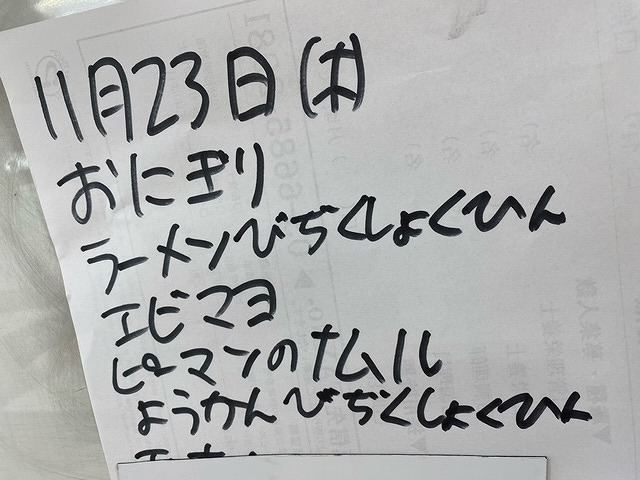 11月23日(木)
おにぎり
ラーメンびぢくしょくひん
エビマヨ
ピーマンのナムル
ようかんびぢくしょくひん